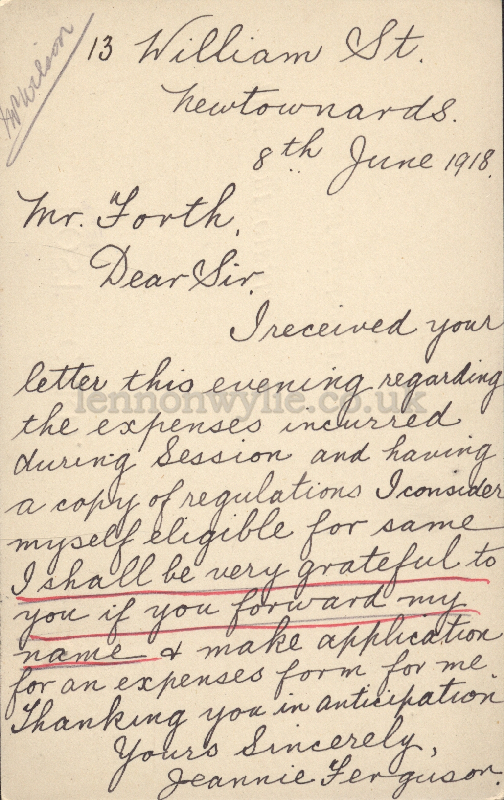 13 William St.
Newtownards.
8th June 1918.
Mr. Forth,
Dear Sir.
I received your
letter this evening regarding
lennonwylie.co.uk
the expenses incurred
during Session and having
a copy of regulations I consider
myself eligible for same
I shall be very grateful to
you if you forward my
name & make application
for an expenses form for me.
Thanking you in anticipation
Yours Sincerely,
Jeannie Ferguson.